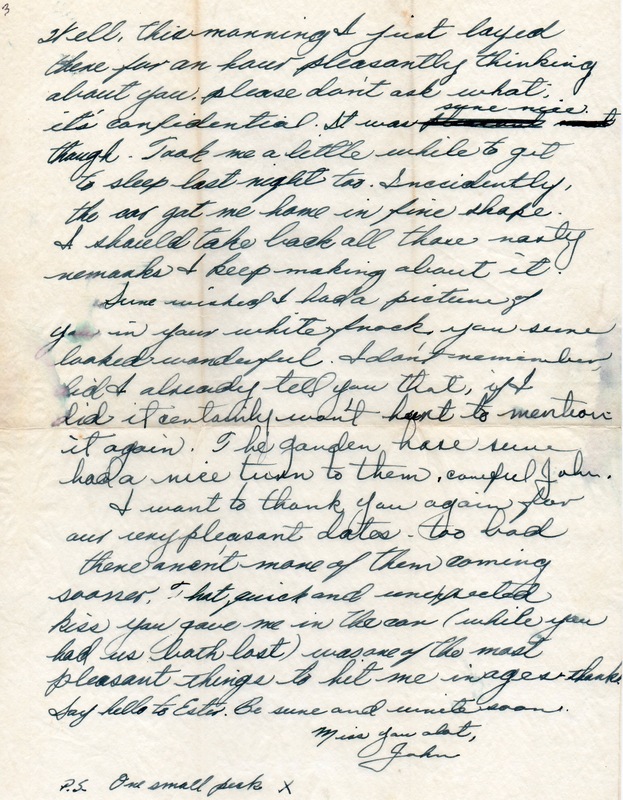 3
Well, this morning I just layed
there for an hour pleasantly thinking
about you, please don't ask what,
it's confidential. It was
sure nice
though. Took me a little while to get
to sleep last night too. Inccidently,
the car got me home in fine shape.
I should take back all those nasty
remarks I keep making about it.
Sure wished I had a picture of
you in your white frock, you sure
looked wonderful. I don't remember,
did I already tell you that, if I
did it certainly won't hurt to mention
it again. The garden hose sure
had a nice turn to them, careful John.
I want to thank you again for
our very pleasant dates - too bad
there aren't more of them coming
sooner. That quick and unexpected
kiss you gave me in the car (while you
had us both lost) was one of the most
pleasant things to hit me in ages - thanks
Say hello to Ester. Be sure and write soon.
Miss you alot,
John
P.S. One small peck X